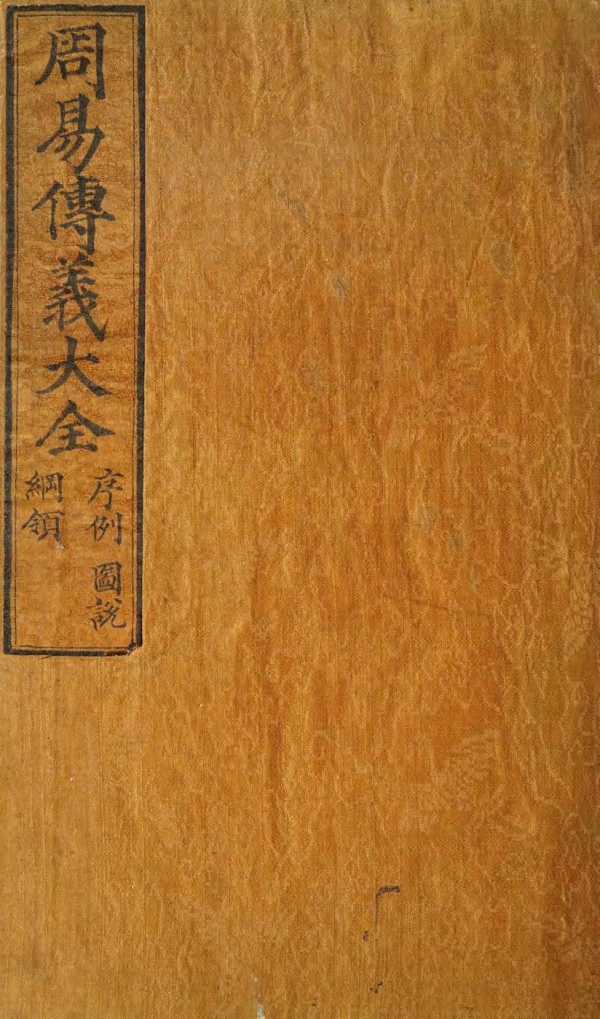 周易傳義大全
序例 圖說
綱領